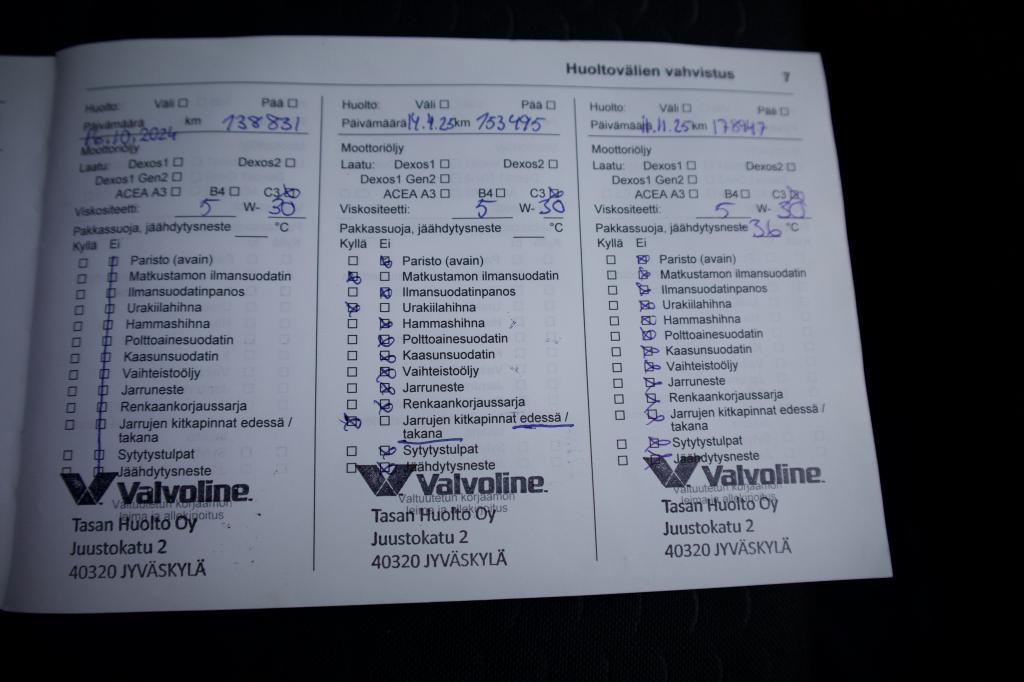 Huoltovälien vahvistus 7
Huolto: Väli ☐ Pää ☐
Päivämäärä 16.10.2024 km 138831
Moottoriöljy
Laatu: Dexos1 ☐ Dexos2 ☐
Dexos1 Gen2 ☐
ACEA A3 ☐ B4 ☐ C3 ☒
Viskositeetti: 5 W- 30
Pakkassuoja, jäähdytysneste °C
Kyllä Ei
☐ ☐ Paristo (avain)
☐ ☐ Matkustamon ilmansuodatin
☐ ☐ Ilmansuodatinpanos
☐ ☐ Urakiilahihna
☐ ☐ Hammashihna
☐ ☐ Polttoainesuodatin
☐ ☐ Kaasunsuodatin
☐ ☐ Vaihteistoöljy
☐ ☐ Jarruneste
☐ ☐ Renkaankorjaussarja
☐ ☐ Jarrujen kitkapinnat edessä /
takana
☐ ☐ Sytytystulpat
☐ ☐ Jäähdytysneste
Valvoline™
Valtuutetun korjaamon
leima ja allekirjoitus
Tasan Huolto Oy
Juustokatu 2
40320 JYVÄSKYLÄ
Huolto: Väli ☐ Pää ☐
Päivämäärä 14.4.25 km 153495
Moottoriöljy
Laatu: Dexos1 ☐ Dexos2 ☐
Dexos1 Gen2 ☐
ACEA A3 ☐ B4 ☐ C3 ☒
Viskositeetti: 5 W- 30
Pakkassuoja, jäähdytysneste °C
Kyllä Ei
☐ ☒ Paristo (avain)
☒ ☐ Matkustamon ilmansuodatin
☐ ☒ Ilmansuodatinpanos
☒ ☐ Urakiilahihna
☐ ☒ Hammashihna
☐ ☒ Polttoainesuodatin
☐ ☒ Kaasunsuodatin
☐ ☒ Vaihteistoöljy
☐ ☒ Jarruneste
☐ ☒ Renkaankorjaussarja
☒ ☐ Jarrujen kitkapinnat edessä /
takana
☐ ☒ Sytytystulpat
☐ ☒ Jäähdytysneste
Valvoline™
Valtuutetun korjaamon
leima ja allekirjoitus
Tasan Huolto Oy
Juustokatu 2
40320 JYVÄSKYLÄ
Huolto: Väli ☐ Pää ☐
Päivämäärä 11.11.25 km 178947
Moottoriöljy
Laatu: Dexos1 ☐ Dexos2 ☐
Dexos1 Gen2 ☐
ACEA A3 ☐ B4 ☐ C3 ☒
Viskositeetti: 5 W- 30
Pakkassuoja, jäähdytysneste 36 °C
Kyllä Ei
☐ ☒ Paristo (avain)
☐ ☒ Matkustamon ilmansuodatin
☐ ☒ Ilmansuodatinpanos
☐ ☒ Urakiilahihna
☐ ☒ Hammashihna
☐ ☒ Polttoainesuodatin
☐ ☒ Kaasunsuodatin
☐ ☒ Vaihteistoöljy
☐ ☒ Jarruneste
☐ ☒ Renkaankorjaussarja
☐ ☒ Jarrujen kitkapinnat edessä /
takana
☐ ☒ Sytytystulpat
☐ ☒ Jäähdytysneste
Valvoline™
Valtuutetun korjaamon
leima ja allekirjoitus
Tasan Huolto Oy
Juustokatu 2
40320 JYVÄSKYLÄ